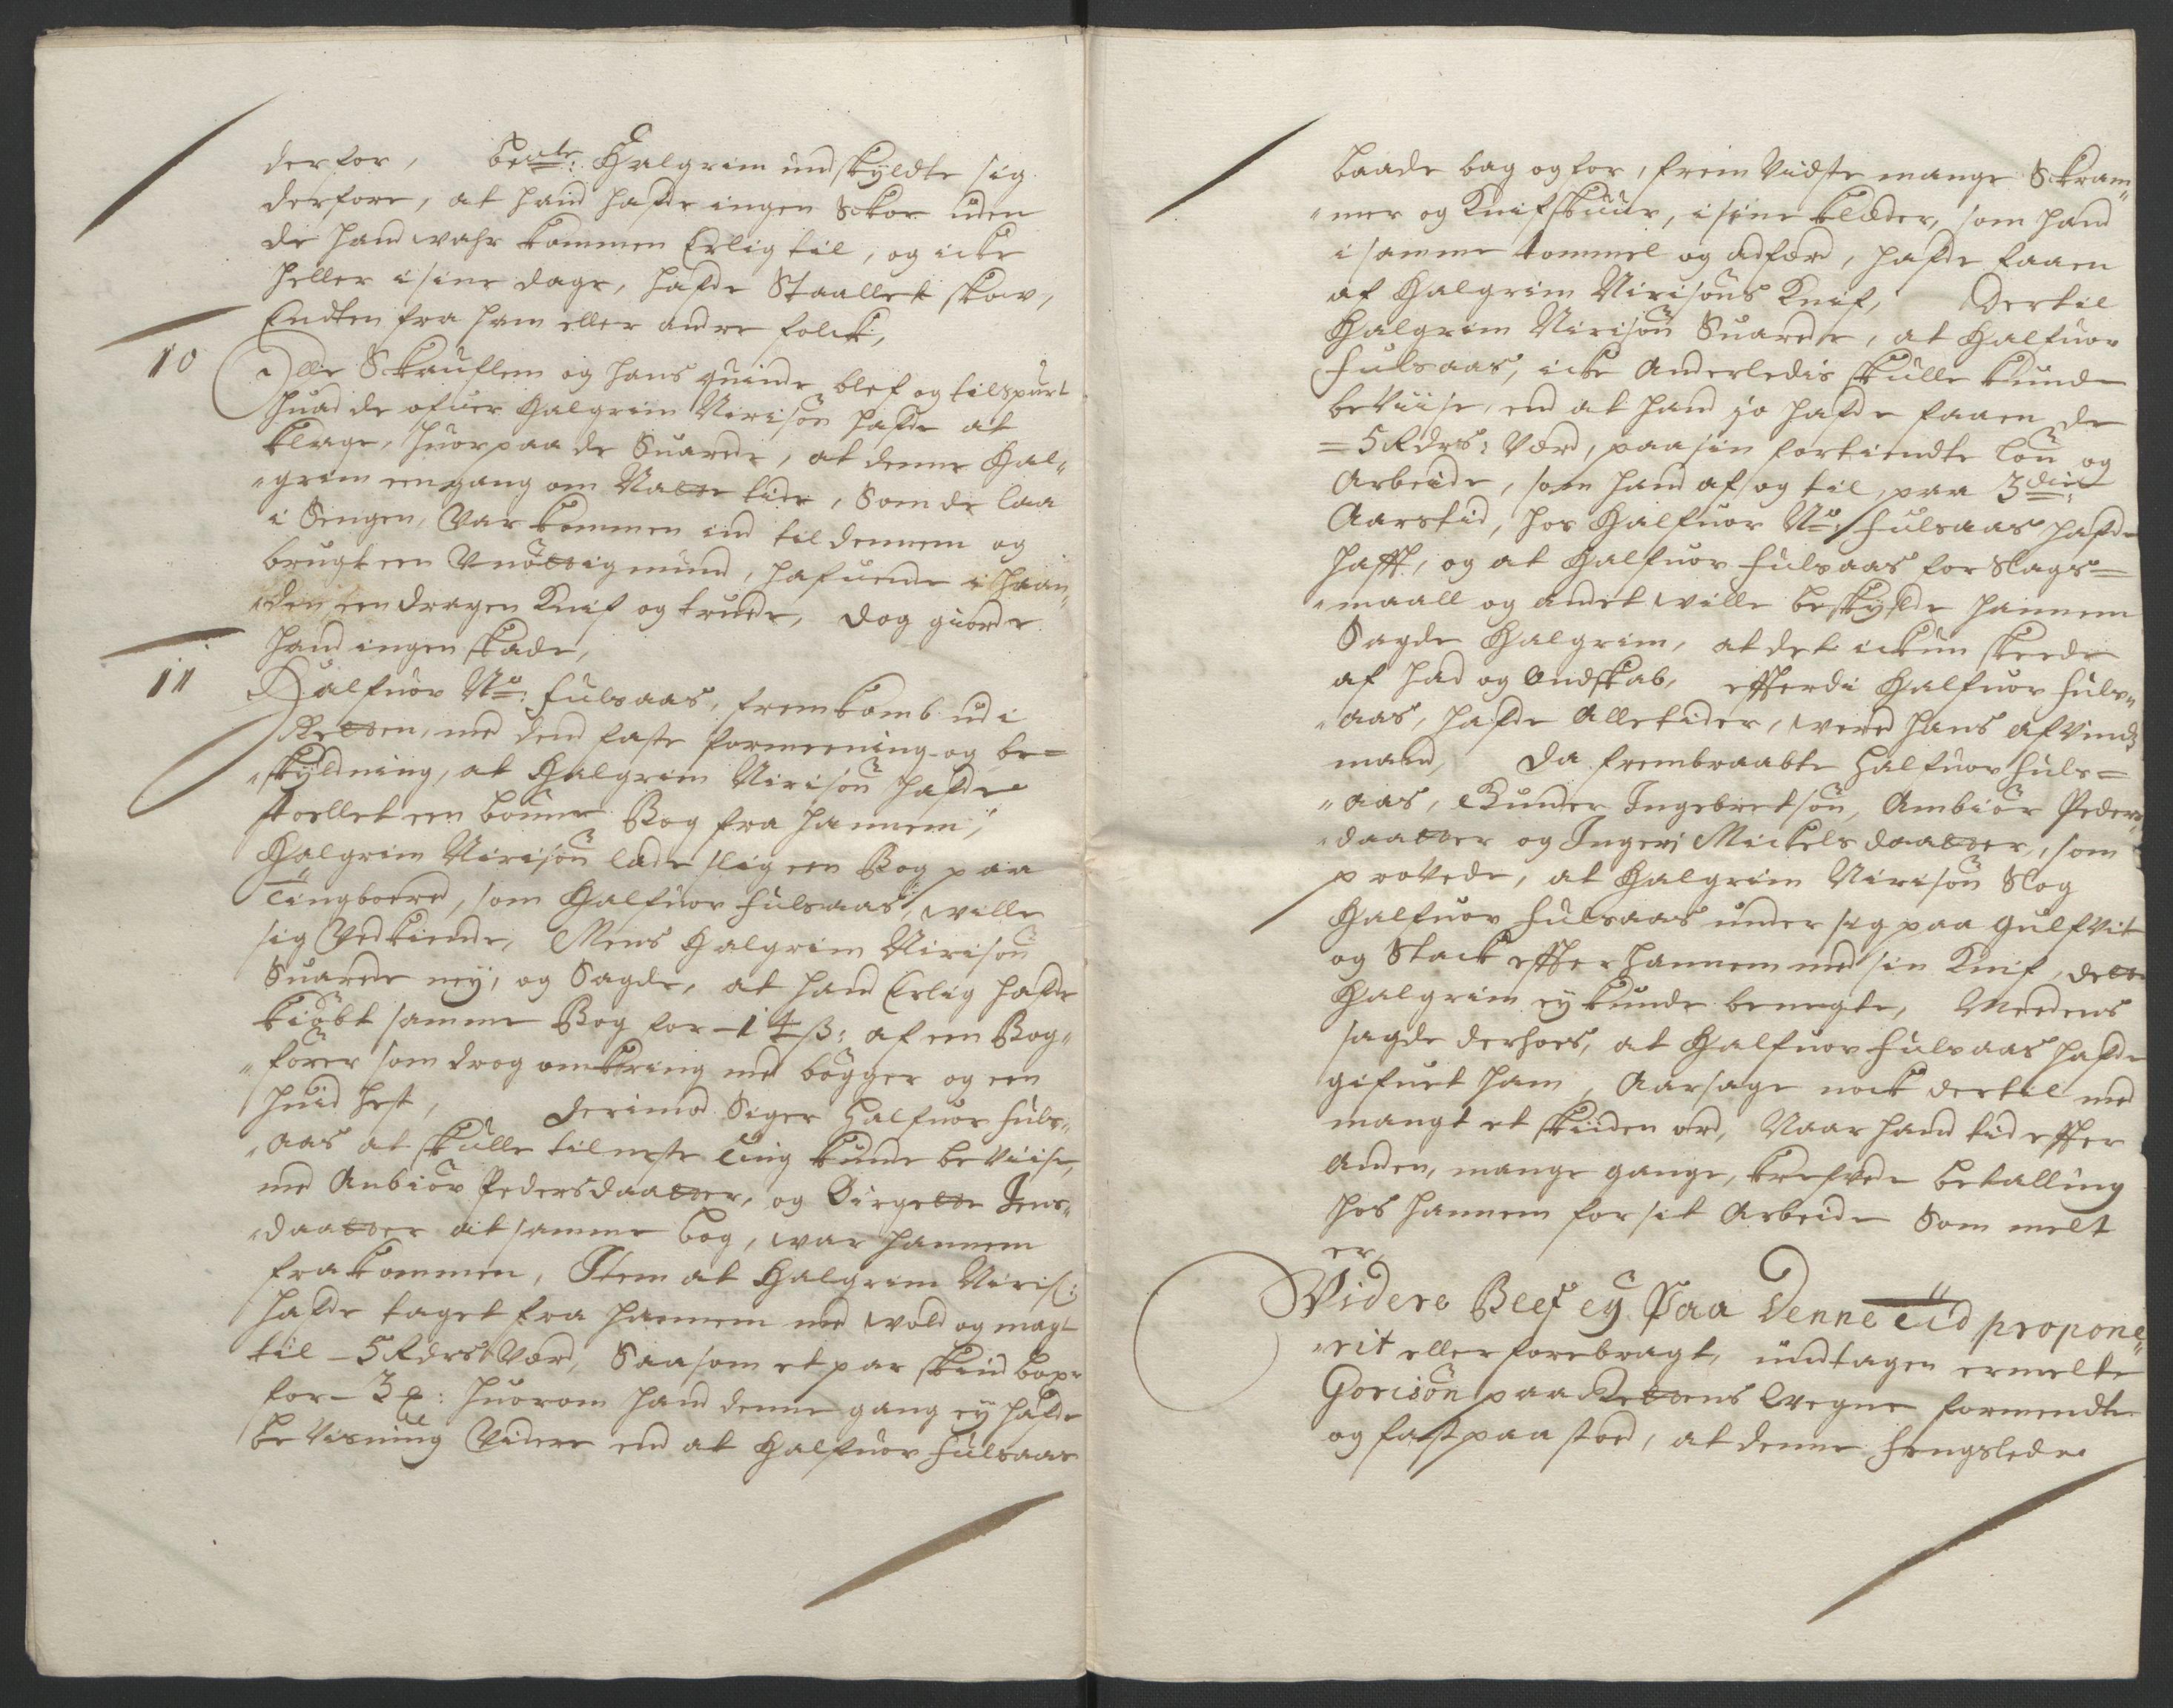 derfor, bem:te Halgrim undskyldte sig
derfore, at hand hafde ingen Skor uden
de hand wahr kommen Erlig til, og icke
heller i sine dage, hafde Staallet skor,
Endten fra ham eller andre folck,
10 Olle Skruflem og hans quinde blef og tilspurt
huad de ofuer Halgrim Nirisön hafde at
klage, huorpaa de Suarede, at denne Hal„
„grim een gang om Natte tide, Som de laa
i Sengen, Var kommen ind til dennem og
brugt een Vnöttig mund, hafuende i haan„
„den een dragen Knif og truede, dog giorde
hand ingen skade,
11 Halfuor N:o Fulsaas, fremkomb ud i
Retten, med dend faste formeening og be=
„skyldning, at Halgrim Nirisön hafde
stoellet een bönne Bog fra hannem,
Halgrim Nirisön lade slig een Bog paa
Tingbored, som Halfuor Fulsaas, wille
sig Vedkiende, Mens Halgrim Nirisön
Suarede ney, og Sagde, at hand Erlig hafde
kiöbt samme Bog for - 14 ß: af een Bog„
„förer som drog omkring med bögger og een
huid hest, Derimod Siger Halfuor Fuls„
„aas at skulle til neste Ting kunde beViise,
med Anbiör Pedersdaatter, og Birgette Jens„
„daatter at samme bog, war hannem
frakommen, Item at Halgrim Niris:
hafde taget fra hannem med wold og magt
til - 5 Rdrs Værd, Saasom et par skind boxer
for - 3 huorom hand denne gang ey hafde
beVisning Videre end at Halfuor Fulsaas
baade bag og for, frem Vidste mange Skram„
„mer og Knifskuur, i sine klæder, som hand
i samme tommel og adferd, hafde faaen
af Halgrim Nirisöns Knif, Dertil
Halgrim Nirisön Suarede, at Halfuor
Fulsaas, icke Anderledis skulle kunde
beViise, end at hand jo hafde faaen de
= 5 Rdrs: Værd, paa sin fortiendte lön og
Arbeide, som hand af og til, paa 3die
Aarstid, hos Halfuor N:o Fulsaas hafde
hafft, og at Halfuor Fulsaas for Slags=
„maall og andet wille beskylde hannem
Sagde Halgrim, at det ickun skeede
af had og Ondskab, efferdi Halfuor Fuls„
„aas, hafde Alletider, wered hans afVinds
mand, Da frembraabte Halfuor Fuls=
„aas, Gunder Ingebretsön, Ambiör Peders„
„daatter og Ingeri Mickels daatter, som
prowede, at Halgrim Nirisön Slog
Halfuor Fulsaas under sig paa gulfvit
og Stack effter hannem med sin Knif, dette
Halgrim ey kunde benegte, Meedens
sagde derhoes, at Halfuor Fulsaas hafde
gifuet ham, Aarsage nock dertil med
mangt et skiiden ord, Naar hand tid effter
Anden, mange gange, krefvede betalling
hos hannem for sit Arbeide Som melt
er,
Videre Blef ey Paa Denne Tiid propone„
„rit eller forebragt, undtagen ermelte
Gorisön paa Rettens Vegne formendte
og fast paastoed, at denne fengslede